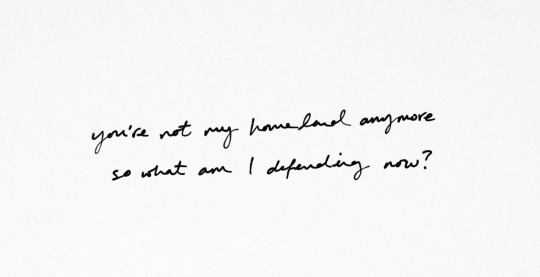 you're not my homeland anymore
so what am I defending now?